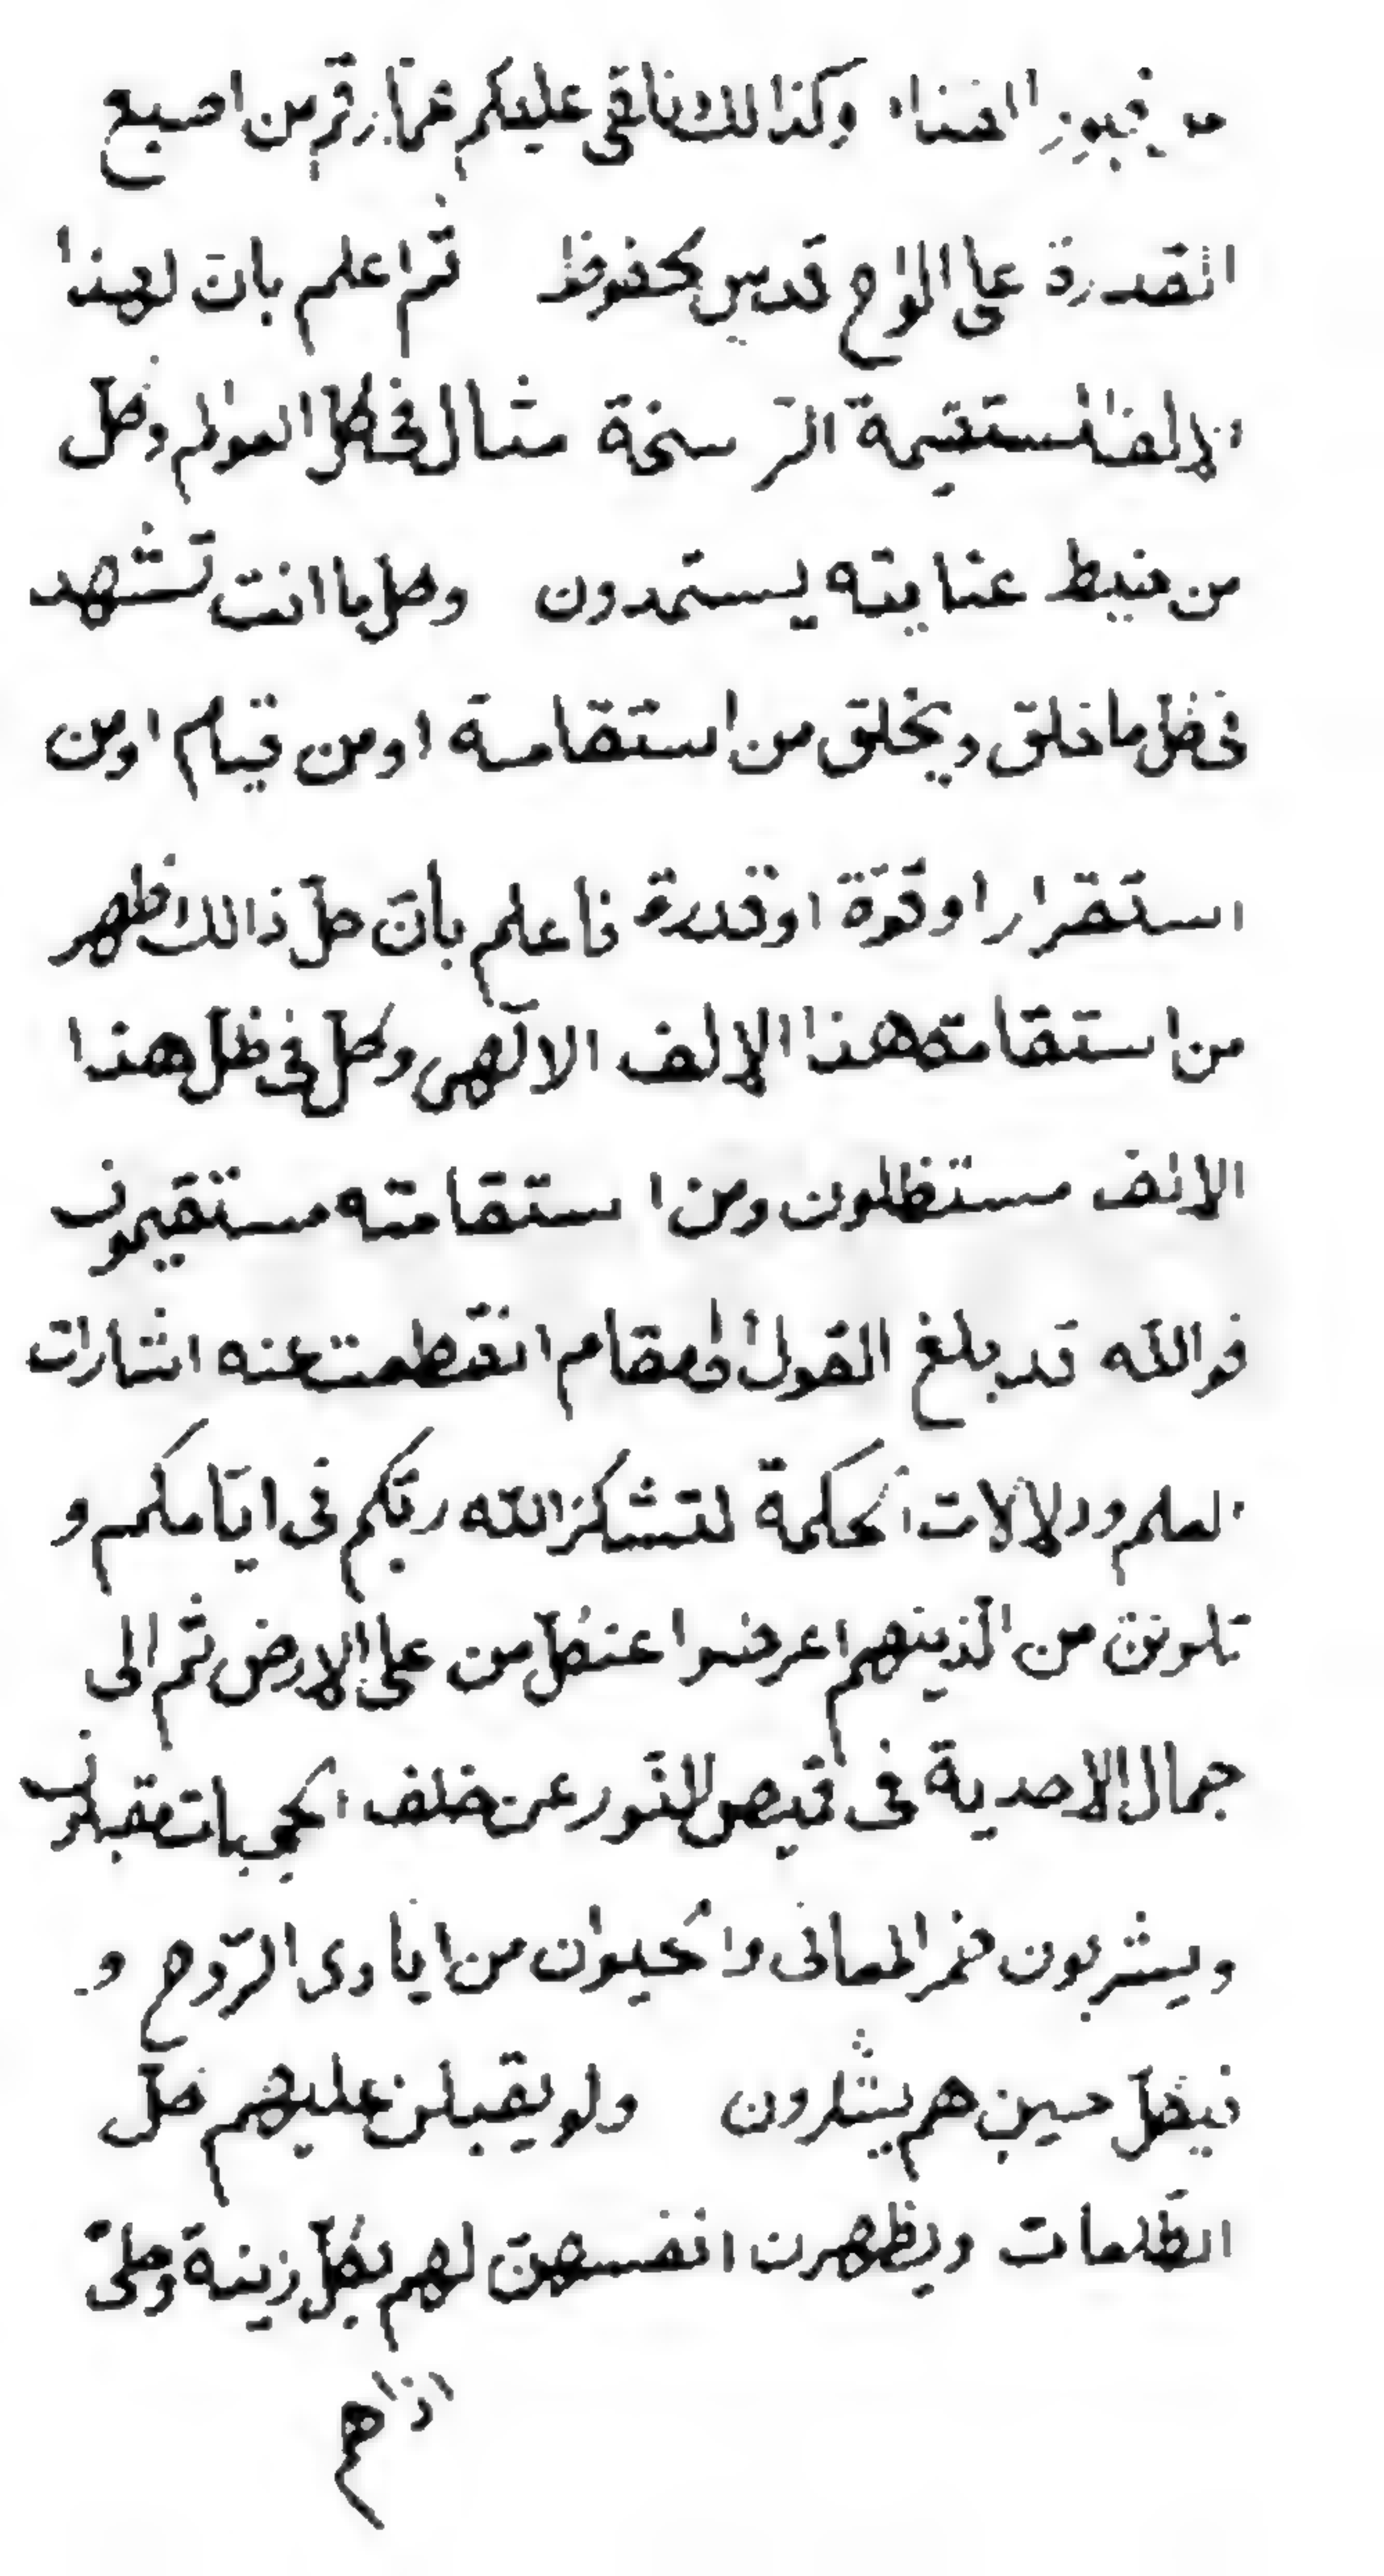 من قبور الفناء وكذالك نلقی علیكم ممّا رقم من اصبع
القدرة علی الواح قدس محفوظ ثم اعلم بانّ لهذا
الالف المستقیمة الرّاسخة مثال فی كلّ العوالم وكلّ
من ضبط عنایته یستمدون وكل ما انت تشهد
فی كلّ ما خلق ویخلق من استقامة او من قیام او من
استقرار او قوّة او قدرة فاعلم بانّ كلّ ذالك ظهر
من استقامة هذا الالف الالٓهی وكلّ فی ظلّ هذا
الالف مستظلون ومن استقامته مستقیمون
فوالله قد بلغ القول الی مقام انقطعت عنه اشارات
العلم ودلالات الحكمة لتشكرنّ الله ربّكم فی ایّامكم و
تكوننّ من الّذینهم اعرضوا عن كلّ من علی الارض ثم الی
جمال الاحدیة فی قمیص النّور عن خلف الحجبات مقبلون
ویشربون خمر المعانی والحیوان من ایادی الرّوح و
فیكلّ حین هم یشارون ولو یقبلن علیهم كلّ
الطّلعات ویظهرن انفسهنّ لهم بكلّ زینة وحلیّ
اذا هم